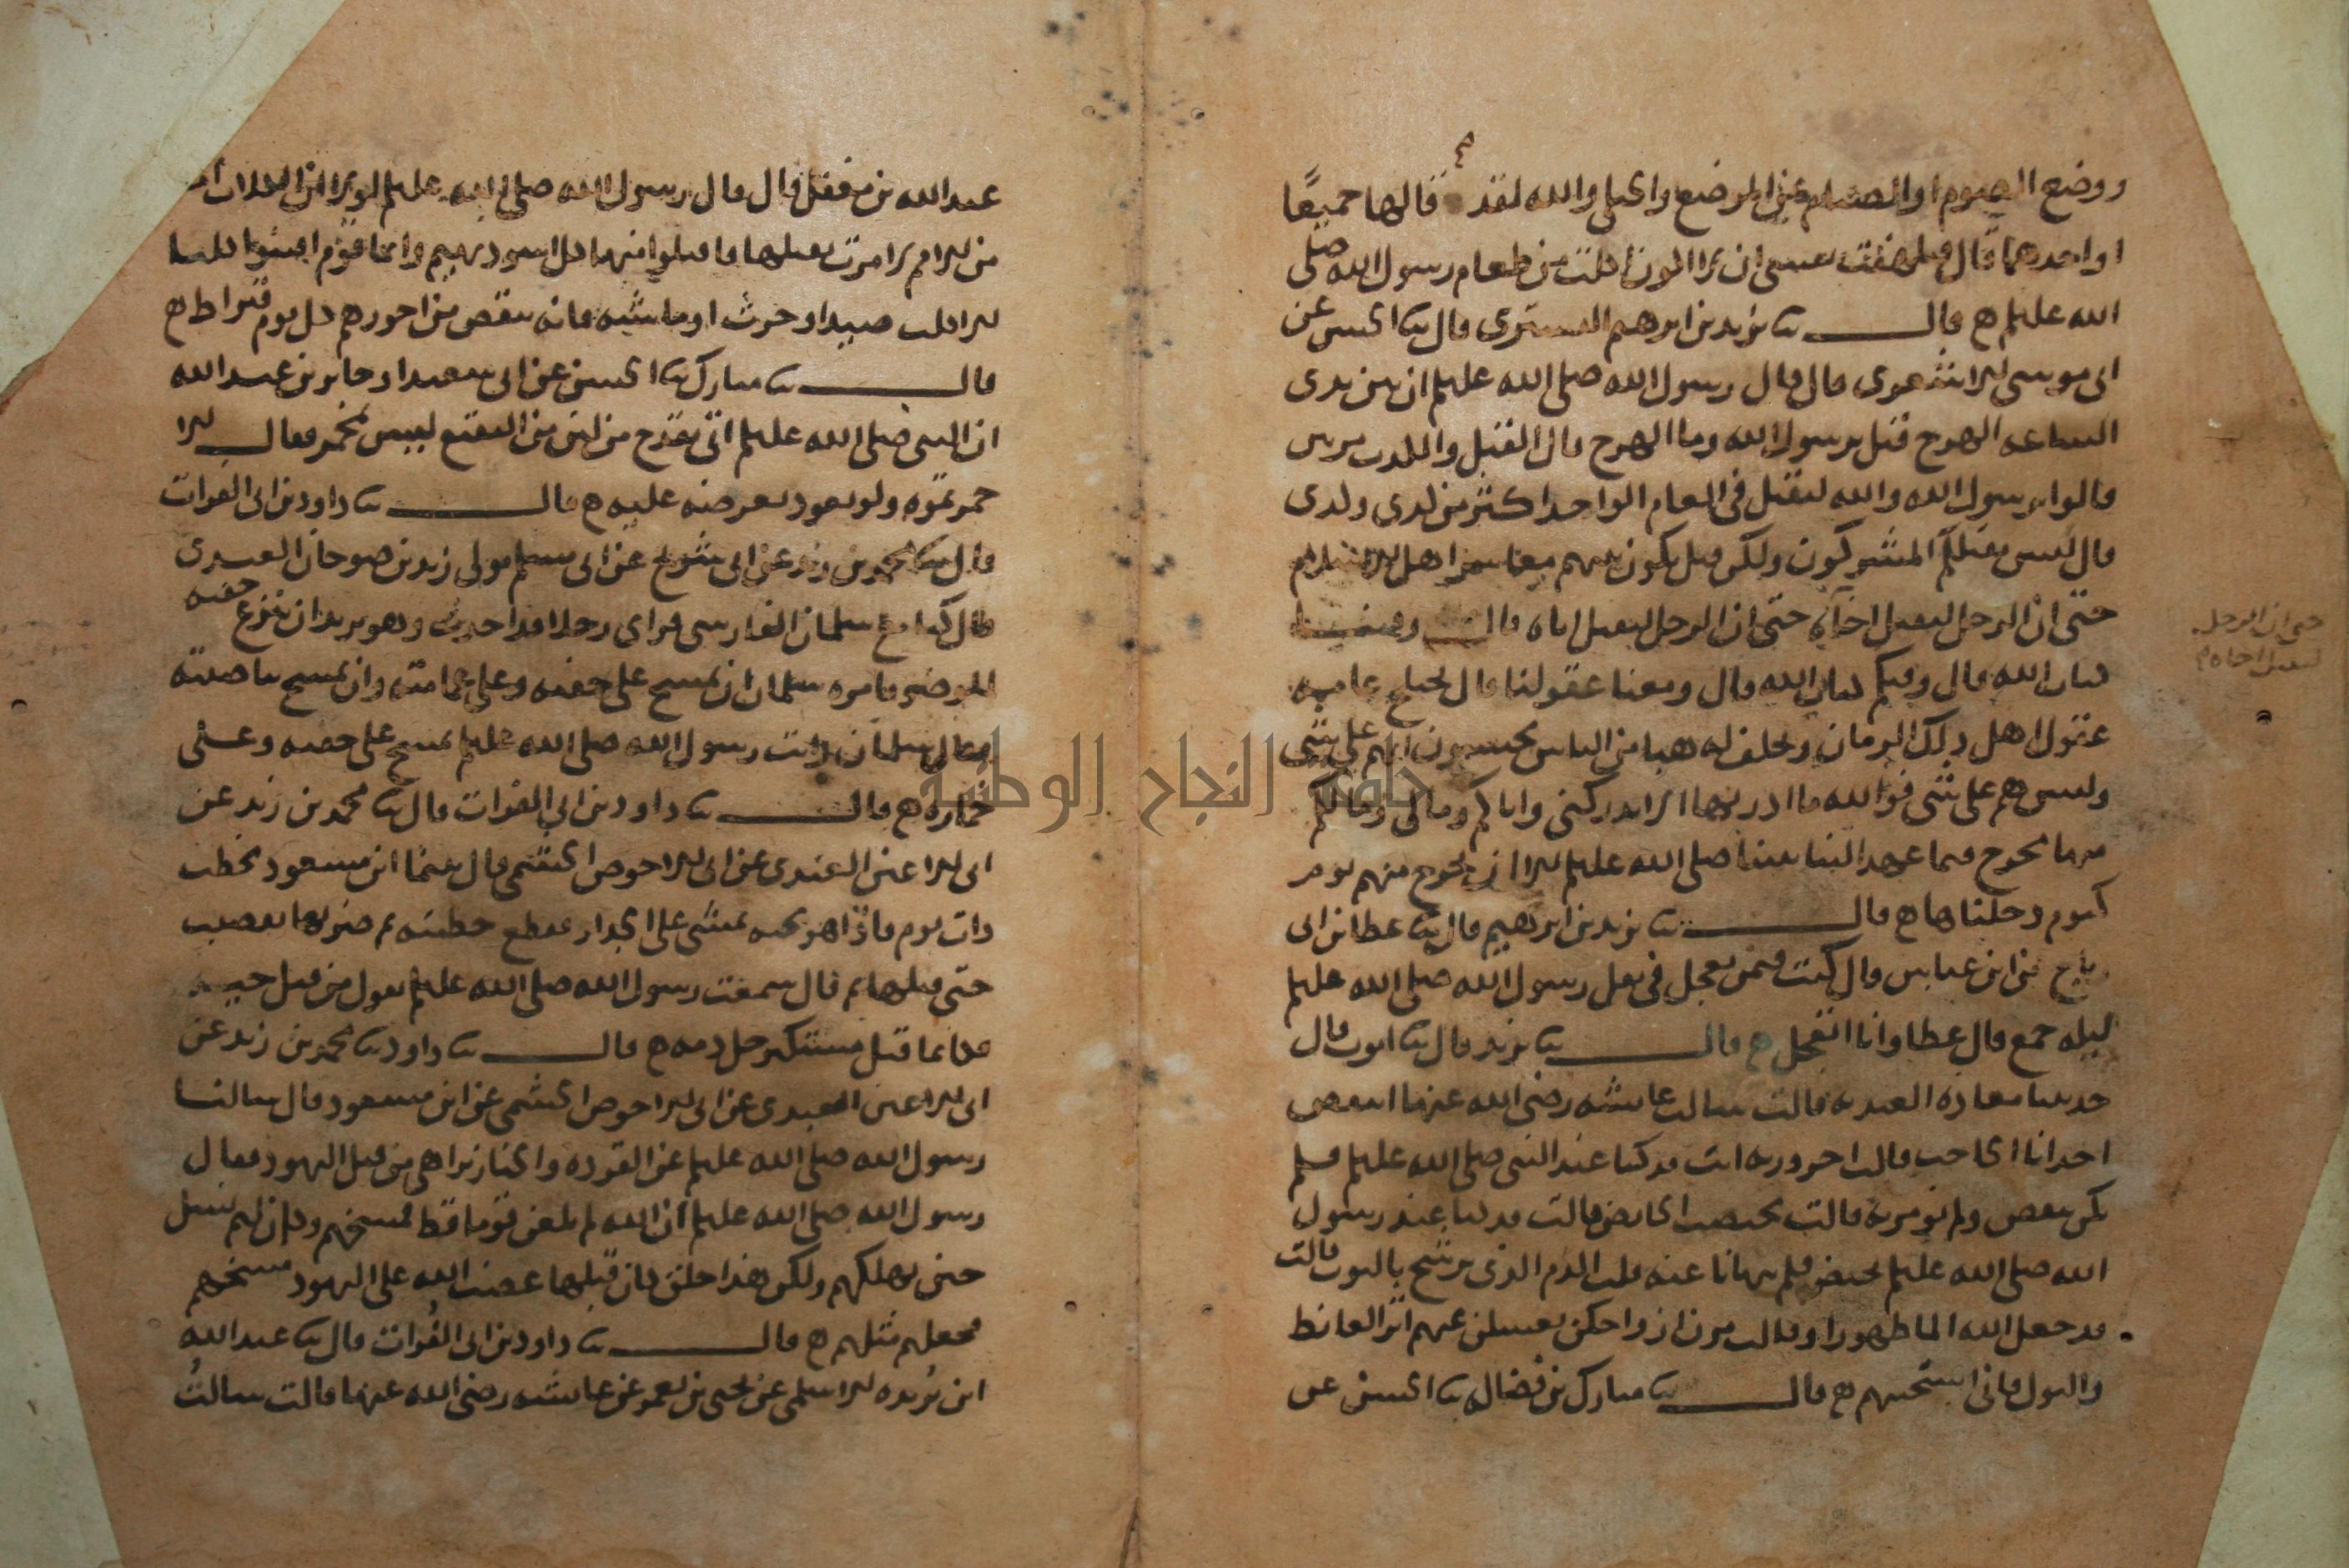 ووضع الصوم او الصيام عن المرضع والحبلى والله لقد قالها جميعًا
او احدهما قال فلهفت نفسي ان لا اكون اكلت من طعام رسول الله صلى
الله عليه قال ثنا يزيد بن ابرهيم التستري قال ثنا الحسن عن
ابي موسى الاشعري قال قال رسول الله صلى الله عليه ان بين يدي
الساعه الهرج قيل يرسول الله وما الهرج قال القتل والكذب مرتين
قالوا يرسول الله والله لنقتل في العام الواحد اكثر من كذي وكذى
قال ليس بقتلكم المشركون ولكن قتل يكون بينهم معاشر اهل الاسلام
حتى ان الرجل ليقتل اخاه حتى ان الرجل ليقتل اباه قال وفينا
كتاب الله قال وفيكم كتاب الله قال ومعنا عقولنا قال يختلج عامة
عقول اهل ذلك الزمان ويخلف له هبا من الناس يحسبون انهم على شي
وليسوا هم على شي فوالله ما ادري بها الا مدركتي واياكم ومالي ومالكم
منها مخرج فيما عهد الينا نبينا صلى الله عليه الا ان نخرج منهم يوم
كيوم دخلناها قال ثنا يزيد بن ابرهيم قال ثنا عطا بن ابي
رباح عن ابن عباس قال كنت فيمن تعجل في ثقل رسول الله صلى الله عليه
ليله جمع قال عطا وانا اتعجل قال ثنا يزيد قال ثنا ايوب قال
حدثتنا معاذه العدويه قالت سالت عايشه رضي الله عنها اتقضي
احدانا الحاجب قالت احروريه انت قد كنا عند النبي صلى الله عليه فلم
نكن نقضي ولم نومر به قالت تختضب الحايض قالت قد كنا عند رسول
الله صلى الله عليه نختضب فلم ينهانا عنه قلت الدم الذي يرشح بالثوب قالت
قد جعل الله الما طهورا وقالت مرن ازواجكن يغسلن عنهم اثر الغائط
والبول فاني استحييهم قال ثنا مبارك بن فضاله ثنا الحسن عن
حتى ان الرجل
ليقتل اخاه
عبد الله بن مغفل قال قال رسول الله صلى الله عليه لولا ان الكلاب امة
من الامم لامرت بقتلها فاقتلوا منها كل اسود بهيم وايما قوم اقتنوا كلبا
الا كلب صيد او حرث او ماشيه فانه ينقص من اجورهم كل يوم قيراط
قال ثنا مبارك ثنا الحسن عن ابي سعيد او جابر بن عبد الله
ان النبي صلى الله عليه اتي بقدح من لبن من النقيع ليس بمخمر فقال الا
خمرتموه ولو بعود يعرضه عليه قال ثنا داود بن ابي الفرات
قال ثنا محمد بن زيد عن ابي شريح عن ابي مسلم مولى زيد بن صوحان العبدي
قال كنا مع سلمان الفارسي فراى رجلا قد احدث وهو يريد ان ينزع خفيه
للوضو فامره سلمان ان يمسح على خفيه وعلى عمامته وان يمسح بناصيته
فقال سلمان رايت رسول الله صلى الله عليه يمسح على خفيه وعلى
خماره قال ثنا داود بن ابي الفرات قال ثنا محمد بن زيد عن
ابي الاعين العبدي عن ابي الاحوص الجشمي قال بينما ابن مسعود يخطب
ذات يوم فاذا هو بحيه يمشي على الجدار فقطع خطبته ثم ضربها بقضيب
حتى قتلها ثم قال سمعت رسول الله صلى الله عليه يقول من قتل حيه
فكانما قتل مشركا حل دمه قال ثنا داود ثنا محمد بن زيد عن
ابي الاعين العبدي عن ابي الاحوص الجشمي عن ابن مسعود قال سالنا
رسول الله صلى الله عليه عن القرده والخنازير اهي من قبل اليهود فقال
رسول الله صلى الله عليه ان الله لم يلعن قوما قط فمسخهم وكان لهم نسل
حتى يهلكهم ولكن هذا خلق كان قبلها غضب الله على اليهود مسخهم
فجعلهم مثلهم قال ثنا داود بن ابي الفرات قال ثنا عبد الله
ابن بريده الاسلمي عن يحيى بن يعمر عن عايشه رضي الله عنها قالت سالت
جامعة النجاح الوطنية